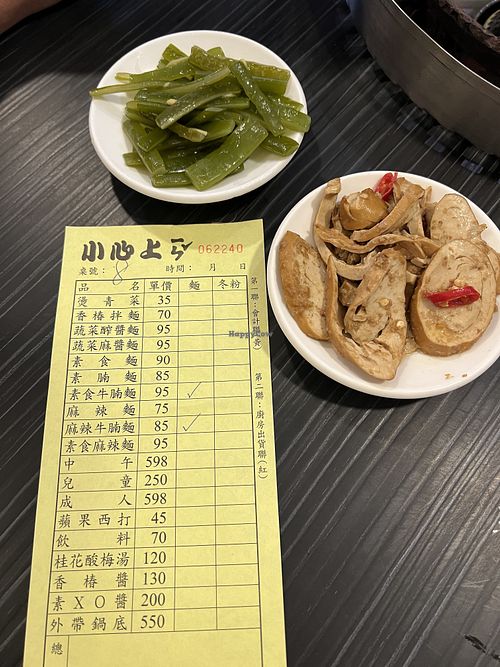 小心上ㄎ 062240
桌號： 8 時間： 月 日
品名 單價 麵 冬粉
燙青菜 35
香椿拌麵 70
蔬菜醡醬麵 95
蔬菜麻醬麵 95
素食麵 90
素腩麵 85
素食牛腩麵 95 ✓
麻辣麵 75
麻辣牛腩麵 85 ✓
素食麻辣麵 95
中午 598
兒童 250
成人 598
蘋果西打 45
飲料 70
桂花酸梅湯 120
香椿醬 130
素XO醬 200
外帶鍋底 550
總
第一聯：會計聯(黃)
第二聯：廚房出貨聯(紅)
HappyCow